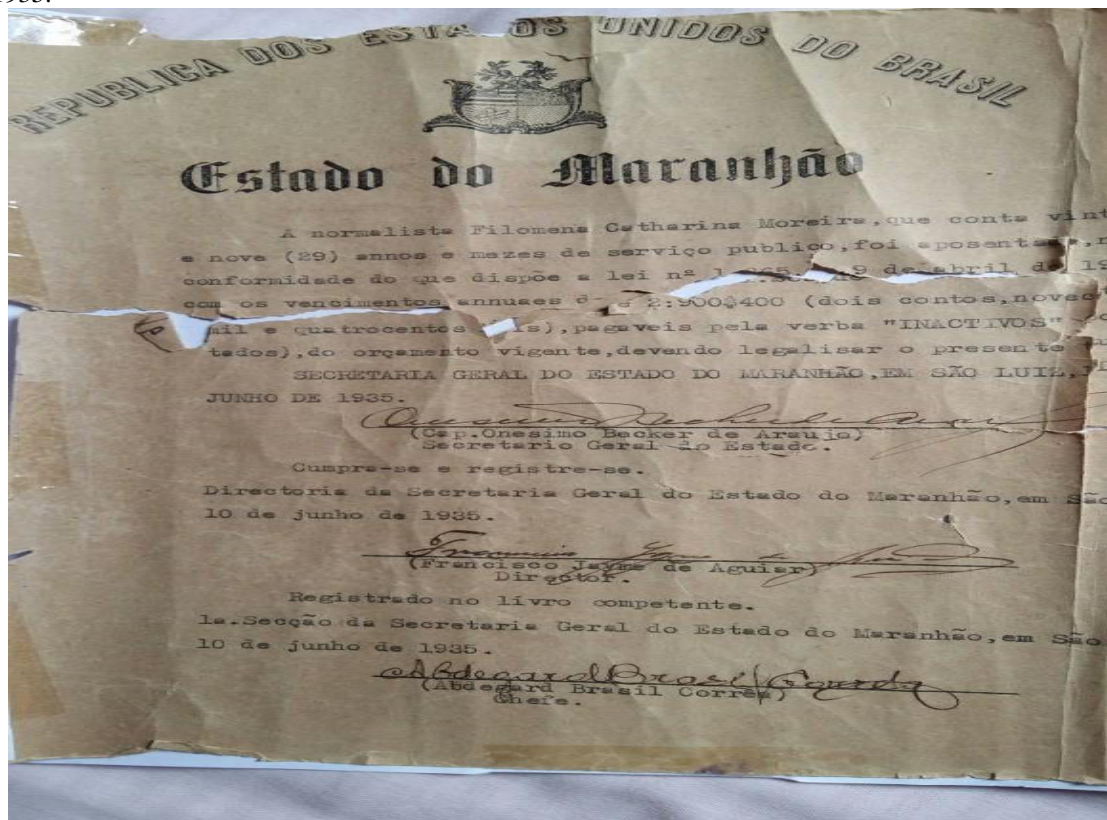 1935.
REPUBLICA DOS ESTA OS UNIDOS DO BRASIL
Estado do Maranhão
A normalista Filomena Catharina Moreira,que conta vint
e nove (29) annos e mezes de serviço publico,foi aposentad
conformidade do que dispõe a lei nº 9 de abril de 19
com os vencimentos annuaes d 2:900$400 (dois contos,novec
mil e quatrocentos is),pagaveis pela verba "INACTIVOS"
tados),do orçamento vigente,devendo legalisar o presente
SECRETARIA GERAL DO ESTADO DO MARANHÃO,EM SÃO LUIZ,
JUNHO DE 1935.
(Cap.Onesimo Becker de Araujo)
Secretario Geral do Estado.
Cumpra-se e registre-se.
Directoria da Secretaria Geral do Estado do Maranhão,em São
10 de junho de 1935.
(Francisco Jayme de Aguiar)
Director.
Registrado no livro competente.
1a.Secção da Secretaria Geral do Estado do Maranhão,em São
10 de junho de 1935.
Abdegard Brasil Corrêa
(Abdegard Brasil Corrêa)
Chefe.